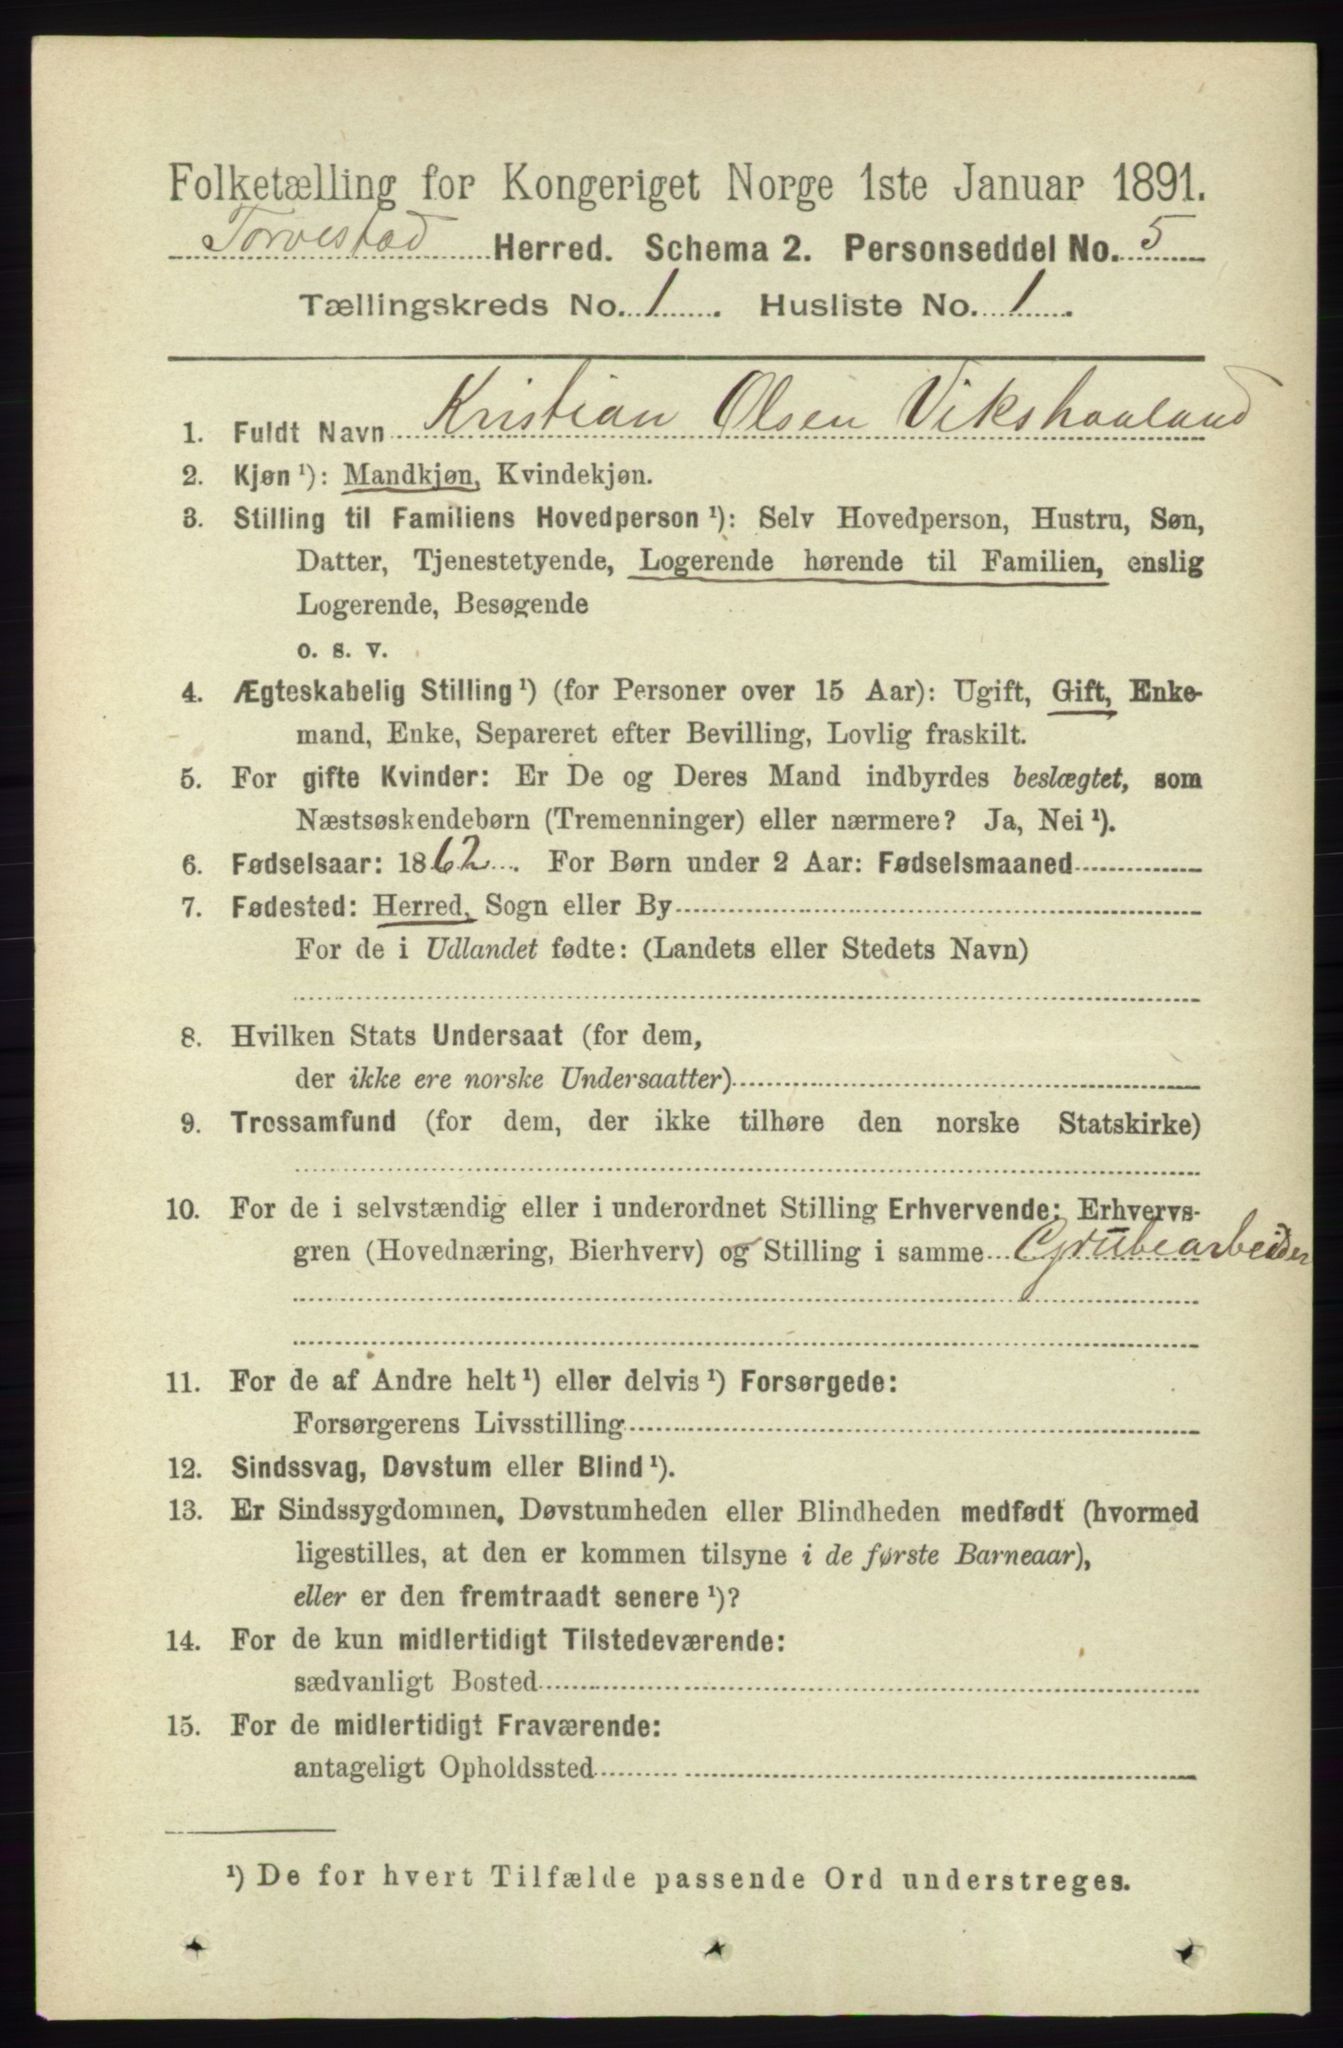 Folketælling for Kongeriget Norge 1ste Januar 1891.
Torvestad Herred. Schema 2. Personseddel No. 5
Tællingskreds No. 1. Husliste No. 1.
1. Fuldt Navn Kristian Olsen Vikshaaland
2. Kjøn¹): Mandkjøn, Kvindekjøn.
3. Stilling til Familiens Hovedperson¹): Selv Hovedperson, Hustru, Søn,
Datter, Tjenestetyende, Logerende hørende til Familien, enslig
Logerende, Besøgende
o. s. v.
4. Ægteskabelig Stilling¹) (for Personer over 15 Aar): Ugift, Gift, Enke-
mand, Enke, Separeret efter Bevilling, Lovlig fraskilt.
5. For gifte Kvinder: Er De og Deres Mand indbyrdes beslægtet, som
Næstsøskendebørn (Tremenninger) eller nærmere? Ja, Nei¹).
6. Fødselsaar: 1862. For Børn under 2 Aar: Fødselsmaaned
7. Fødested: Herred, Sogn eller By
For de i Udlandet fødte: (Landets eller Stedets Navn)
8. Hvilken Stats Undersaat (for dem,
der ikke ere norske Undersaatter)
9. Trossamfund (for dem, der ikke tilhøre den norske Statskirke)
10. For de i selvstændig eller i underordnet Stilling Erhvervende: Erhvervs-
gren (Hovednæring, Bierhverv) og Stilling i samme Grubearbeider
11. For de af Andre helt¹) eller delvis¹) Forsørgede:
Forsørgerens Livsstilling
12. Sindssvag, Døvstum eller Blind¹).
13. Er Sindssygdommen, Døvstumheden eller Blindheden medfødt (hvormed
ligestilles, at den er kommen tilsyne i de første Barneaar),
eller er den fremtraadt senere¹)?
14. For de kun midlertidigt Tilstedeværende:
sædvanligt Bosted
15. For de midlertidigt Fraværende:
antageligt Opholdssted
¹) De for hvert Tilfælde passende Ord understreges.